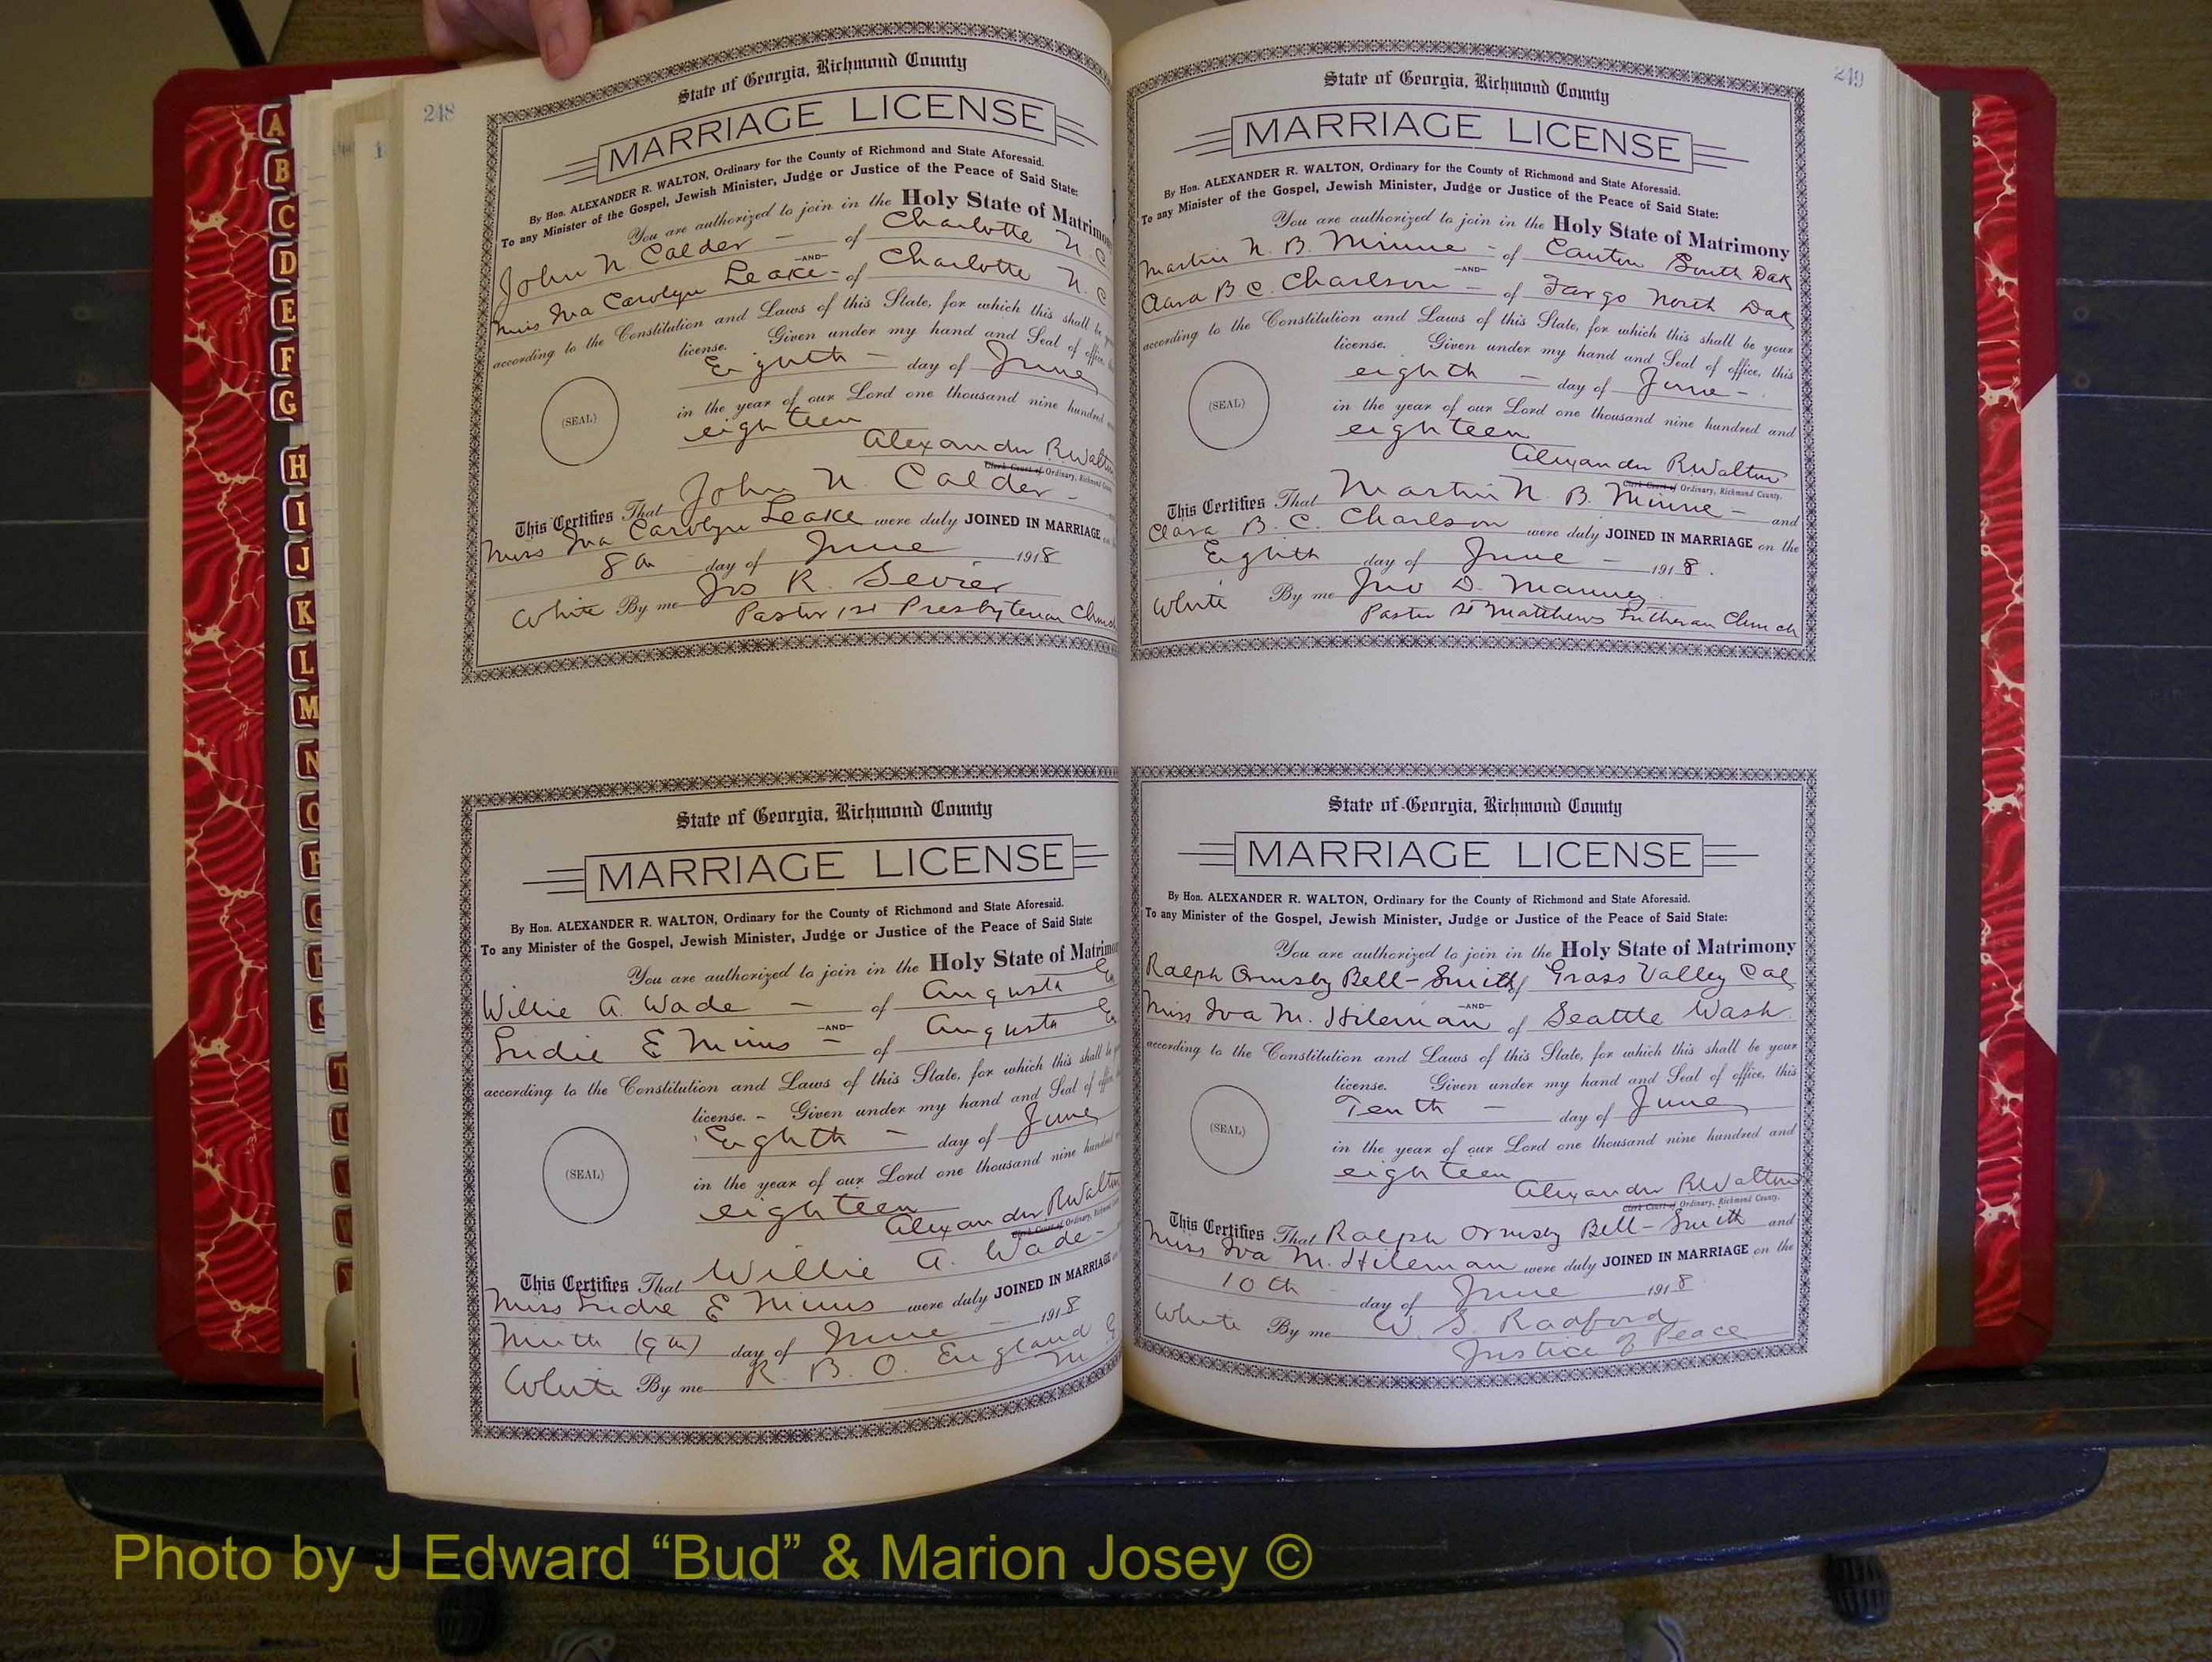 248
State of Georgia, Richmond County
MARRIAGE LICENSE
By Hon. ALEXANDER R. WALTON, Ordinary for the County of Richmond and State Aforesaid.
To any Minister of the Gospel, Jewish Minister, Judge or Justice of the Peace of Said State:
You are authorized to join in the Holy State of Matrimo
John N. Calder - of Charlotte N. C
-AND-
Miss Iva Carolyn Leake - of Charlotte N. C
according to the Constitution and Laws of this State, for which this shall be
license. Given under my hand and Seal of office,
(SEAL)
Eighth - day of June
in the year of our Lord one thousand nine hundred
eighteen
Alexander R Walton
Clerk Court of Ordinary, Richmond County
This Certifies That John N. Calder -
Miss Iva Carolyn Leake were duly JOINED IN MARRIAGE
8th day of June 1918
White By me Jos R. Sevier
Pastor 1st Presbyterian Church
State of Georgia, Richmond County
MARRIAGE LICENSE
By Hon. ALEXANDER R. WALTON, Ordinary for the County of Richmond and State Aforesaid.
To any Minister of the Gospel, Jewish Minister, Judge or Justice of the Peace of Said State:
You are authorized to join in the Holy State of Matrimon
Willie A. Wade - of Augusta Ga
-AND-
E Mims - of Augusta Ga
according to the Constitution and Laws of this State, for which this shall be
license. - Given under my hand and Seal of office,
(SEAL)
Eighth - day of June
in the year of our Lord one thousand nine hundred
eighteen
Alexander R Walton
Clerk Court of Ordinary, Richmond
This Certifies That Willie A. Wade -
Miss E Mims were duly JOINED IN MARRIAGE
Ninth (9th) day of June - 1918
White By me R. B. O. England
M
249
State of Georgia, Richmond County
MARRIAGE LICENSE
By Hon. ALEXANDER R. WALTON, Ordinary for the County of Richmond and State Aforesaid.
To any Minister of the Gospel, Jewish Minister, Judge or Justice of the Peace of Said State:
You are authorized to join in the Holy State of Matrimony
Martin N. B. Minne - of Canton South Dak
-AND-
Clara B. C. Charlson - of Fargo North Dak
according to the Constitution and Laws of this State, for which this shall be your
license. Given under my hand and Seal of office, this
(SEAL)
eighth - day of June -
in the year of our Lord one thousand nine hundred and
eighteen
Alexander R Walton
Clerk Court of Ordinary, Richmond County.
This Certifies That Martin N. B. Minne - and
Clara B. C. Charlson were duly JOINED IN MARRIAGE on the
Eighth day of June - 1918.
White By me Jno D. Manney
Pastor St Matthews Lutheran Church
State of Georgia, Richmond County
MARRIAGE LICENSE
By Hon. ALEXANDER R. WALTON, Ordinary for the County of Richmond and State Aforesaid.
To any Minister of the Gospel, Jewish Minister, Judge or Justice of the Peace of Said State:
You are authorized to join in the Holy State of Matrimony
Ralph Ormsby Bell-Smith of Grass Valley Cal
-AND-
Miss Iva M. Hileman of Seattle Wash.
according to the Constitution and Laws of this State, for which this shall be your
license. Given under my hand and Seal of office, this
(SEAL)
Tenth - day of June
in the year of our Lord one thousand nine hundred and
eighteen
Alexander R Walton
Clerk Court of Ordinary, Richmond County.
This Certifies That Ralph Ormsby Bell-Smith and
Miss Iva M. Hileman were duly JOINED IN MARRIAGE on the
10th day of June 1918
White By me W. S. Radford
Justice of Peace
A
B
C
D
E
F
G
H
I
J
K
L
M
N
O
P
Q
R
S
T
U
V
W
Photo by J Edward “Bud” & Marion Josey ©